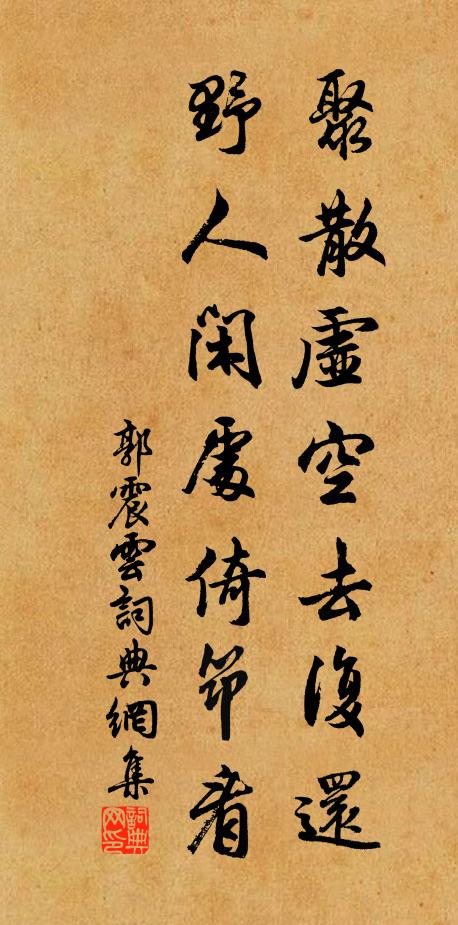 聚散虛空去復還
野人閑處倚筇看
郭震雲詞典網集
詞典網印